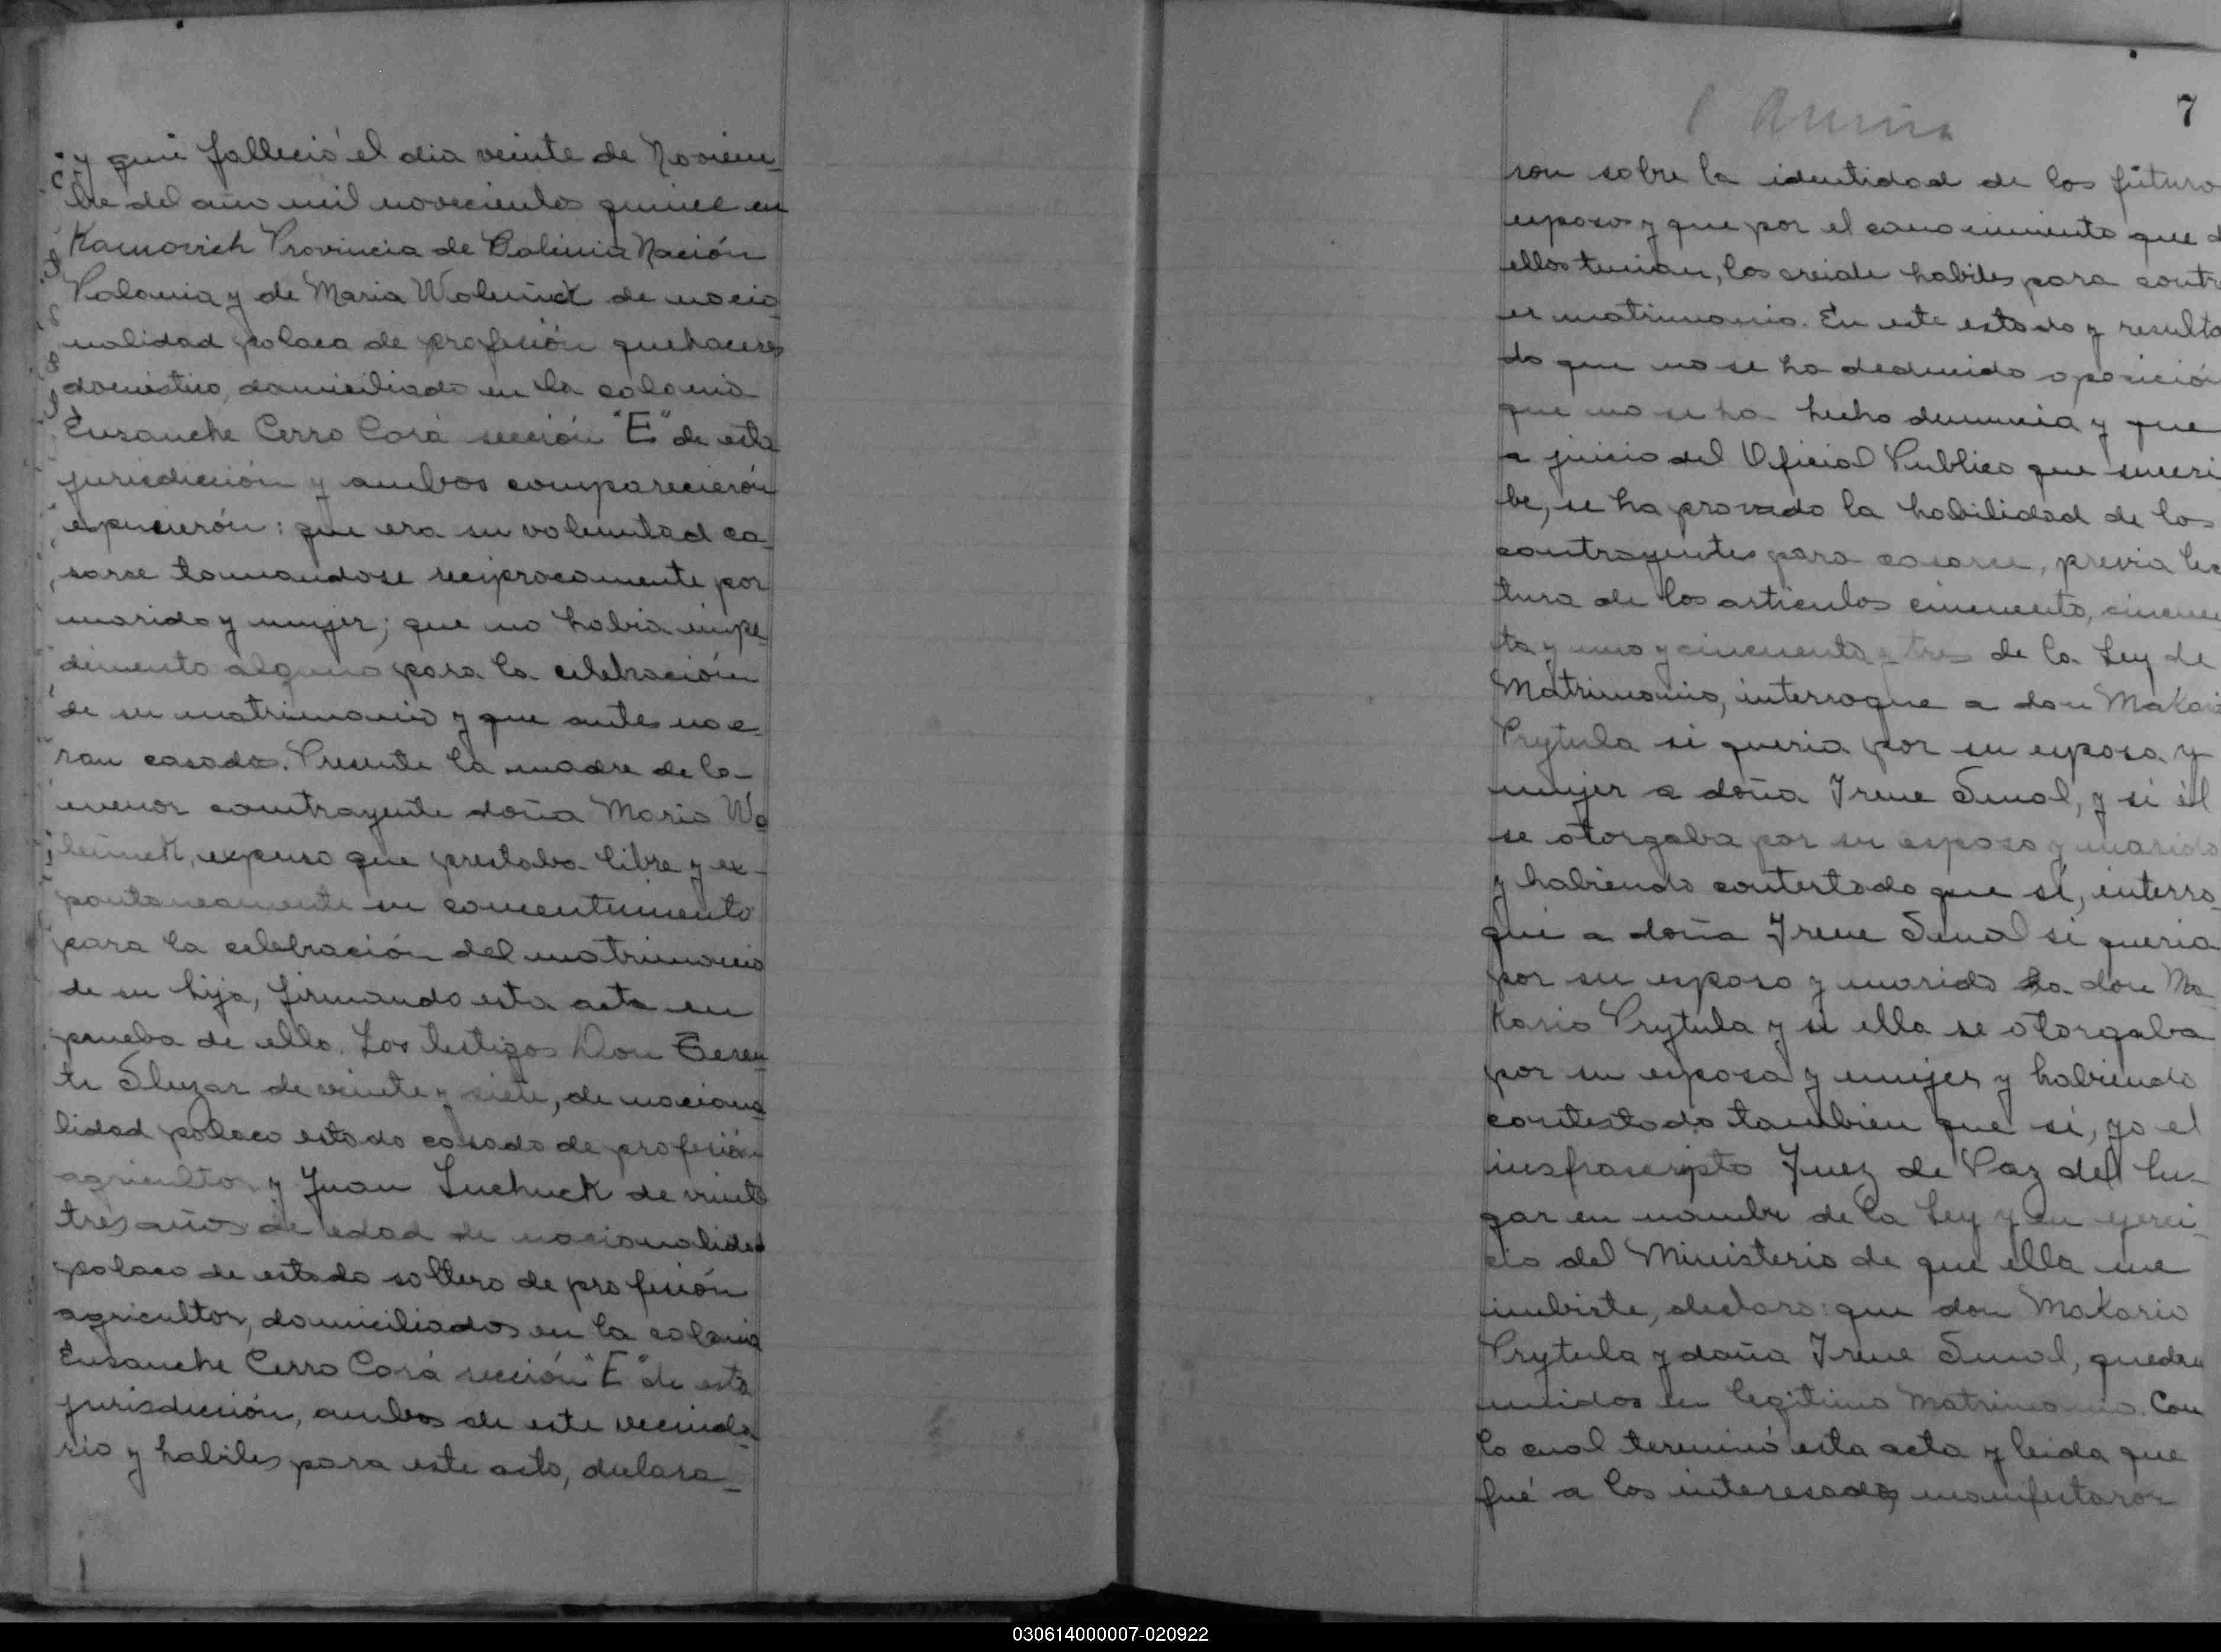 y quien falleció el dia veinte de Noviem_
bre del año mil novecientos quince en
Kamovich Provincia de Bolinia Nación
Polonia y de Maria Woleñuck de nacio_
nalidad polaca de profesión quehaceres
domestico, domiciliado en la colonia
Ensanche Cerro Corá sección "E" de esta
jurisdicción y ambos comparecierón
espucierón: que era su voluntad ca_
sarse tomandose reciprocamente por
marido y mujer; que no habia inpe_
dimento alguno para la celebración
de su matrimonio y que antes no e_
ran casados. Presente la madre de la
menor contrayente doña Maria Wo_
leñuck, expuso que prestaba libre y ex_
pontaneamente su consentimiento
para la celebración del matrimonio
de su hija, firmando esta acta en
prueba de ello. Los testigos Don Teren_
te Sluzar de veinte y siete, de naciona_
lidad polaco estado casado de profesión
agricultor y Juan Luchuck de veinte
tres años de edad de nacionalidad
polaco de estado soltero de profesión
agricultor, domiciliados en la colonia
Ensanche Cerro Corá sección "E" de esta
jurisdicción, ambos de este vecinda_
rio y habiles para este acto, declara_
7
ron sobre la identidad de los futuro
esposos y que por el conocimiento que d
ellos tenian, los creide habiles para contr
er matrimonio. En este estado y resulta
do que no se ha deducido oposición
que no se ha hecho denuncia y que
a juicio del Oficial Publico que suscri
be, se ha provado la habilidad de los
contrayentes para casarse, previa lec
tura de los articulos cincuenta, cincuen
ta y uno y cincuenta y tres de la Ley de
Matrimonio, interrogue a don Makario
Prytula si queria por su esposa y
mujer a doña Irene Smal, y si él
se otorgaba por su esposo y marido
y habiendo contestado que sí, interro_
gué a doña Irene Smal si queria
por su esposo y marido a don Ma_
kario Prytula y si ella se otorgaba
por su esposa y mujer y habiendo
contestado tambien que si, yo el
insfrascripto Juez de Paz del lu_
gar en nombre de la Ley y en ejerci_
cio del Ministerio de que ella me
inbiste, declaro: que don Makario
Prytula y doña Irene Smal, quedan
unidos en legitimo Matrimonio. Con
lo cual tereminó esta acta y leida que
fué a los interesados, manifestaron
030614000007-020922